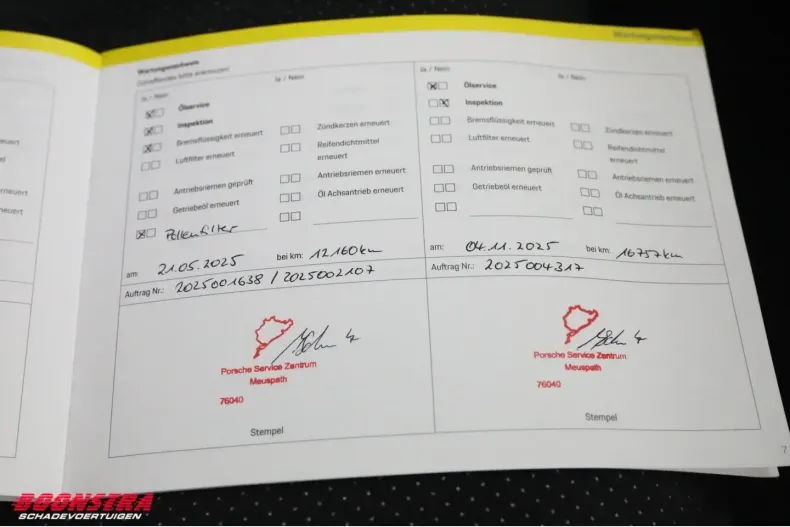 Wartungsnachweis
Wartungsnachweis
Zutreffendes bitte ankreuzen!
Ja / Nein
Ja / Nein
Ölservice
Inspektion
Bremsflüssigkeit erneuert
Luftfilter erneuert
Antriebsriemen geprüft
Getriebeöl erneuert
Pollenfilter
Zündkerzen erneuert
Reifendichtmittel
erneuert
Antriebsriemen erneuert
Öl Achsantrieb erneuert
am: 21.05.2025 bei km: 12160km
Auftrag Nr.: 2025001638 / 2025002107
Porsche Service Zentrum
Meuspath
76040
Stempel
Ja / Nein
Ja / Nein
Ölservice
Inspektion
Bremsflüssigkeit erneuert
Luftfilter erneuert
Antriebsriemen geprüft
Getriebeöl erneuert
Zündkerzen erneuert
Reifendichtmittel
erneuert
Antriebsriemen erneuert
Öl Achsantrieb erneuert
am: 04.11.2025 bei km: 16757km
Auftrag Nr.: 2025004317
Porsche Service Zentrum
Meuspath
76040
Stempel
7
BOONSTRA
SCHADEVOERTUIGEN